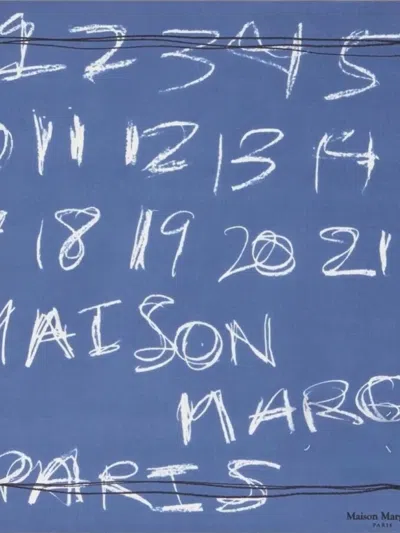 1 2 3 4 5
11 12 13 14
18 19 20 21
MAISON
MARG
PARIS
Maison Mar
PARIS